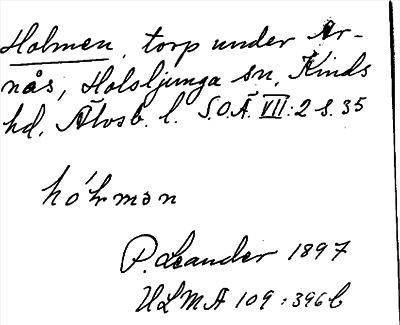 Holmen, torp under Ar-
nås, Holsljunga sn, Kinds
hd, Älvsb. l. S.O.Ä VII:2 s. 35
hólmən
P. Leander 1897
ULMA 109:396b